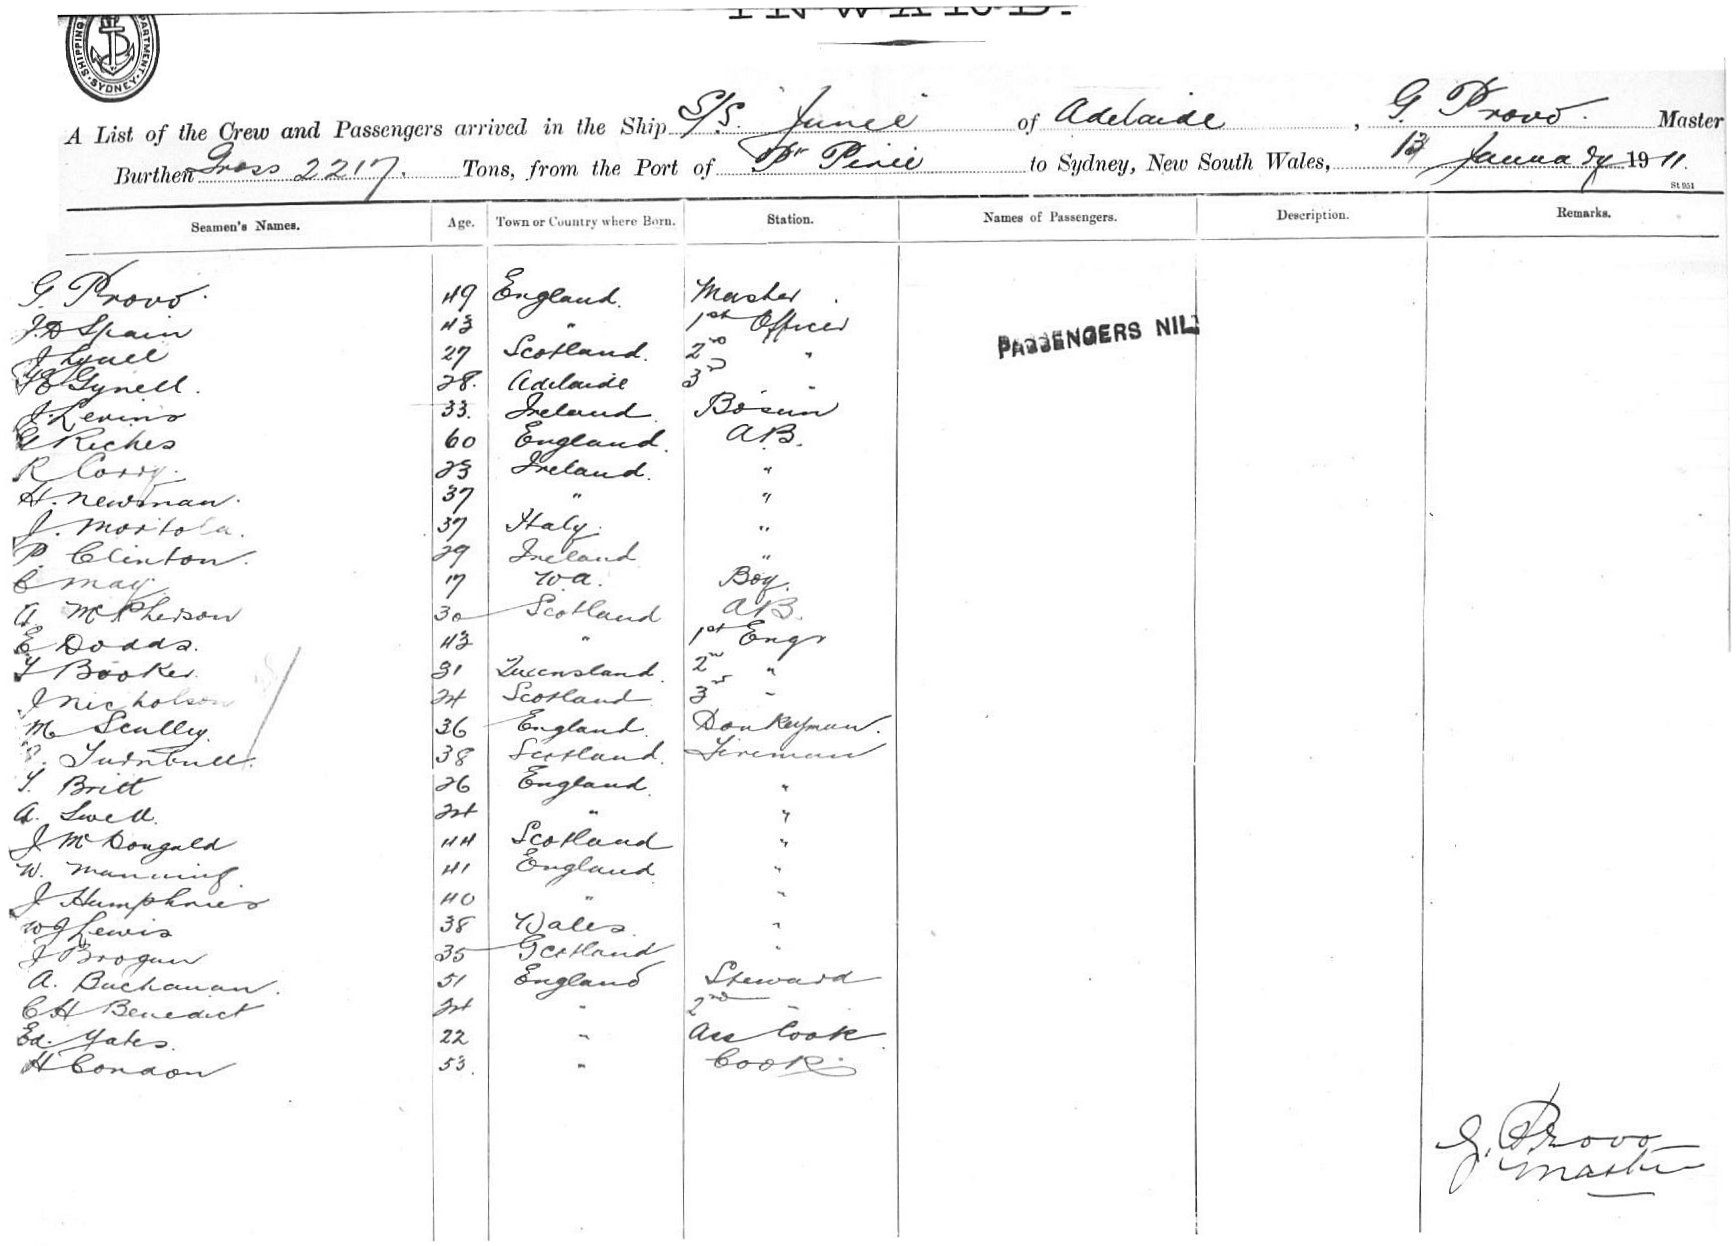 INWARD.
SHIPPING DEPARTMENT. SYDNEY
A List of the Crew and Passengers arrived in the Ship S/S. "Junee" of Adelaide, G. Provo. Master
Burthen Gross 2217. Tons, from the Port of Pt Pirie to Sydney, New South Wales, 13 January 1911.
St 951
Seamen's Names. Age. Town or Country where Born. Station. Names of Passengers. Description. Remarks.
G. Provo. 49 England. Master.
J.D Spain 43 " 1st Officer
PASSENGERS NIL
J 27 Scotland. 2nd "
Gynell. 28. Adelaide 3rd "
J. Levins 33. Ireland Bosun
G Riches 60 England. A.B.
R Corry. 23 Ireland. "
H. Newman. 37 " "
J. Mortola. 37 Italy. "
P. Clinton. 29 Ireland "
C May. 17 W.A. Boy.
A. McPherson 30 Scotland A.B.
E Dodds. 43 " 1st Engr
T Booker. 31 Queensland. 2nd "
J Nicholson 24 Scotland 3rd "
M Scully. 36 England. Donkeyman.
Turnbull. 38 Scotland. Fireman
T. Britt 26 England. "
A. 24 " "
J McDougald 44 Scotland "
W. Manning. 41 England "
J Humphries 40 " "
W J Lewis 38 Wales. "
J Brogan 35 Scotland "
A. Buchanan. 51 England Steward
C H Benedict 24 " 2nd "
Ed. Yates. 22 " Ass Cook
H Condon 53. " Cook.
G. Provo
Master